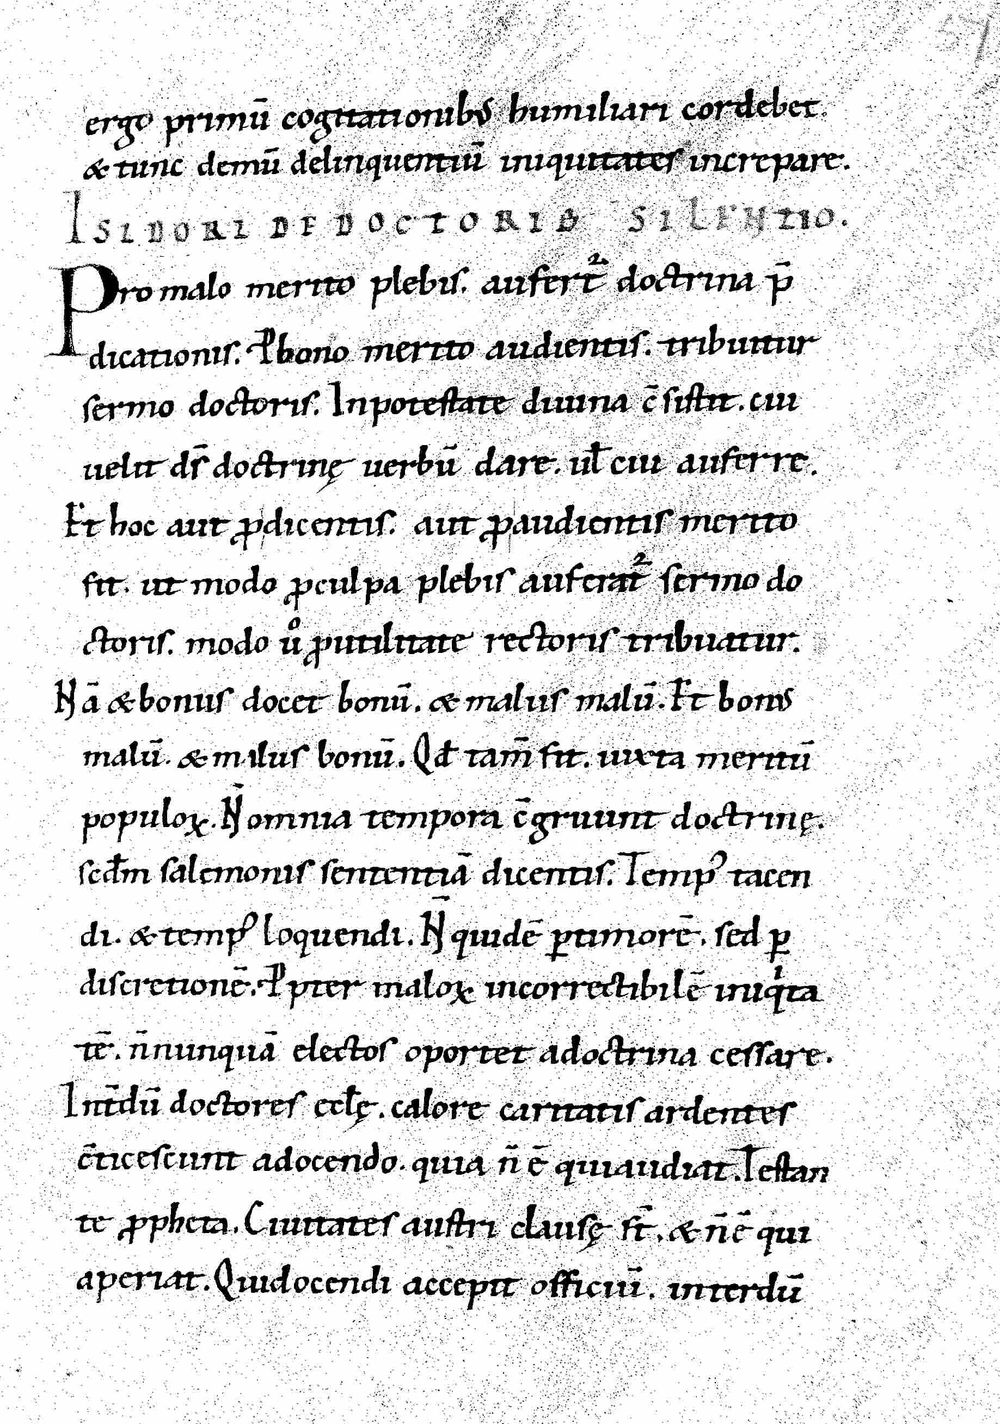 57
ergo primū cogitationibꝰ humiliari cor debet.
& tunc demū delinquentiū iniquitates increpare.
ISIDORI DE DOCTORIB SILENTIO.
Pro malo merito plebis. aufert᷑ doctrina p̄
dicationis. P bono merito audientis. tribuitur
sermo doctoris. In potestate diuina c̄sistit. cui
uelit d̄s doctrinę uerbū dare. ul̄ cui auferre.
Et hoc aut ꝓdicentis. aut ꝓaudientis merito
fit. ut modo ꝓculpa plebis auferat᷑ sermo do
ctoris. modo uͦ ꝓutilitate rectoris tribuatur.
Nā & bonus docet bonū. & malus malū. Et bonus
malū. & malus bonū. Qd̄ tam̄ fit. iuxta meritū
populoꝝ. N̄ omnia tempora c̄gruunt doctrinę.
scd̄m salemonis sententiā dicentis. Tempꝰ tacen
di. & tempꝰ loquendi. N̄ quidē ꝑtimorē. sed ꝑ
discretionē. Ppter maloꝝ incorrectibilē iniqͥta
tē. n̄nunquā electos oportet adoctrina cessare.
Int̄dū doctores eccl̄ę. calore caritatis ardentes
c̄ticescunt adocendo. quia n̄ ē quiaudiat. Testan
te ꝓpheta. Ciuitates austri clausę st̄. & n̄ ē qui
aperiat. Quidocendi accepit officiū. interdū